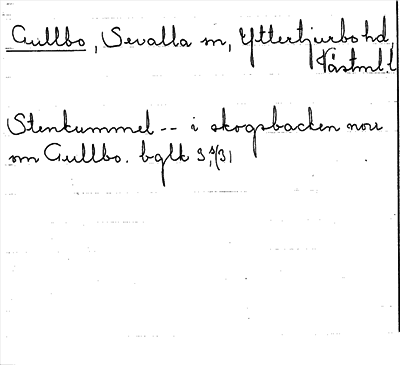 Gullbo, Sevalla sn, Yttertjurbo hd,
Västml l
Stenkummel -- i skogsbacken norr
om Gullbo. bglk